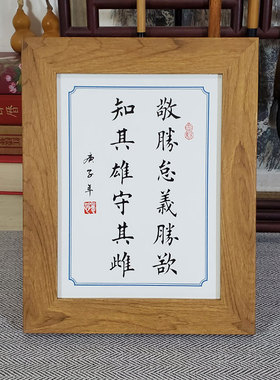 敬勝怠義勝欲
知其雄守其雌
庚子年